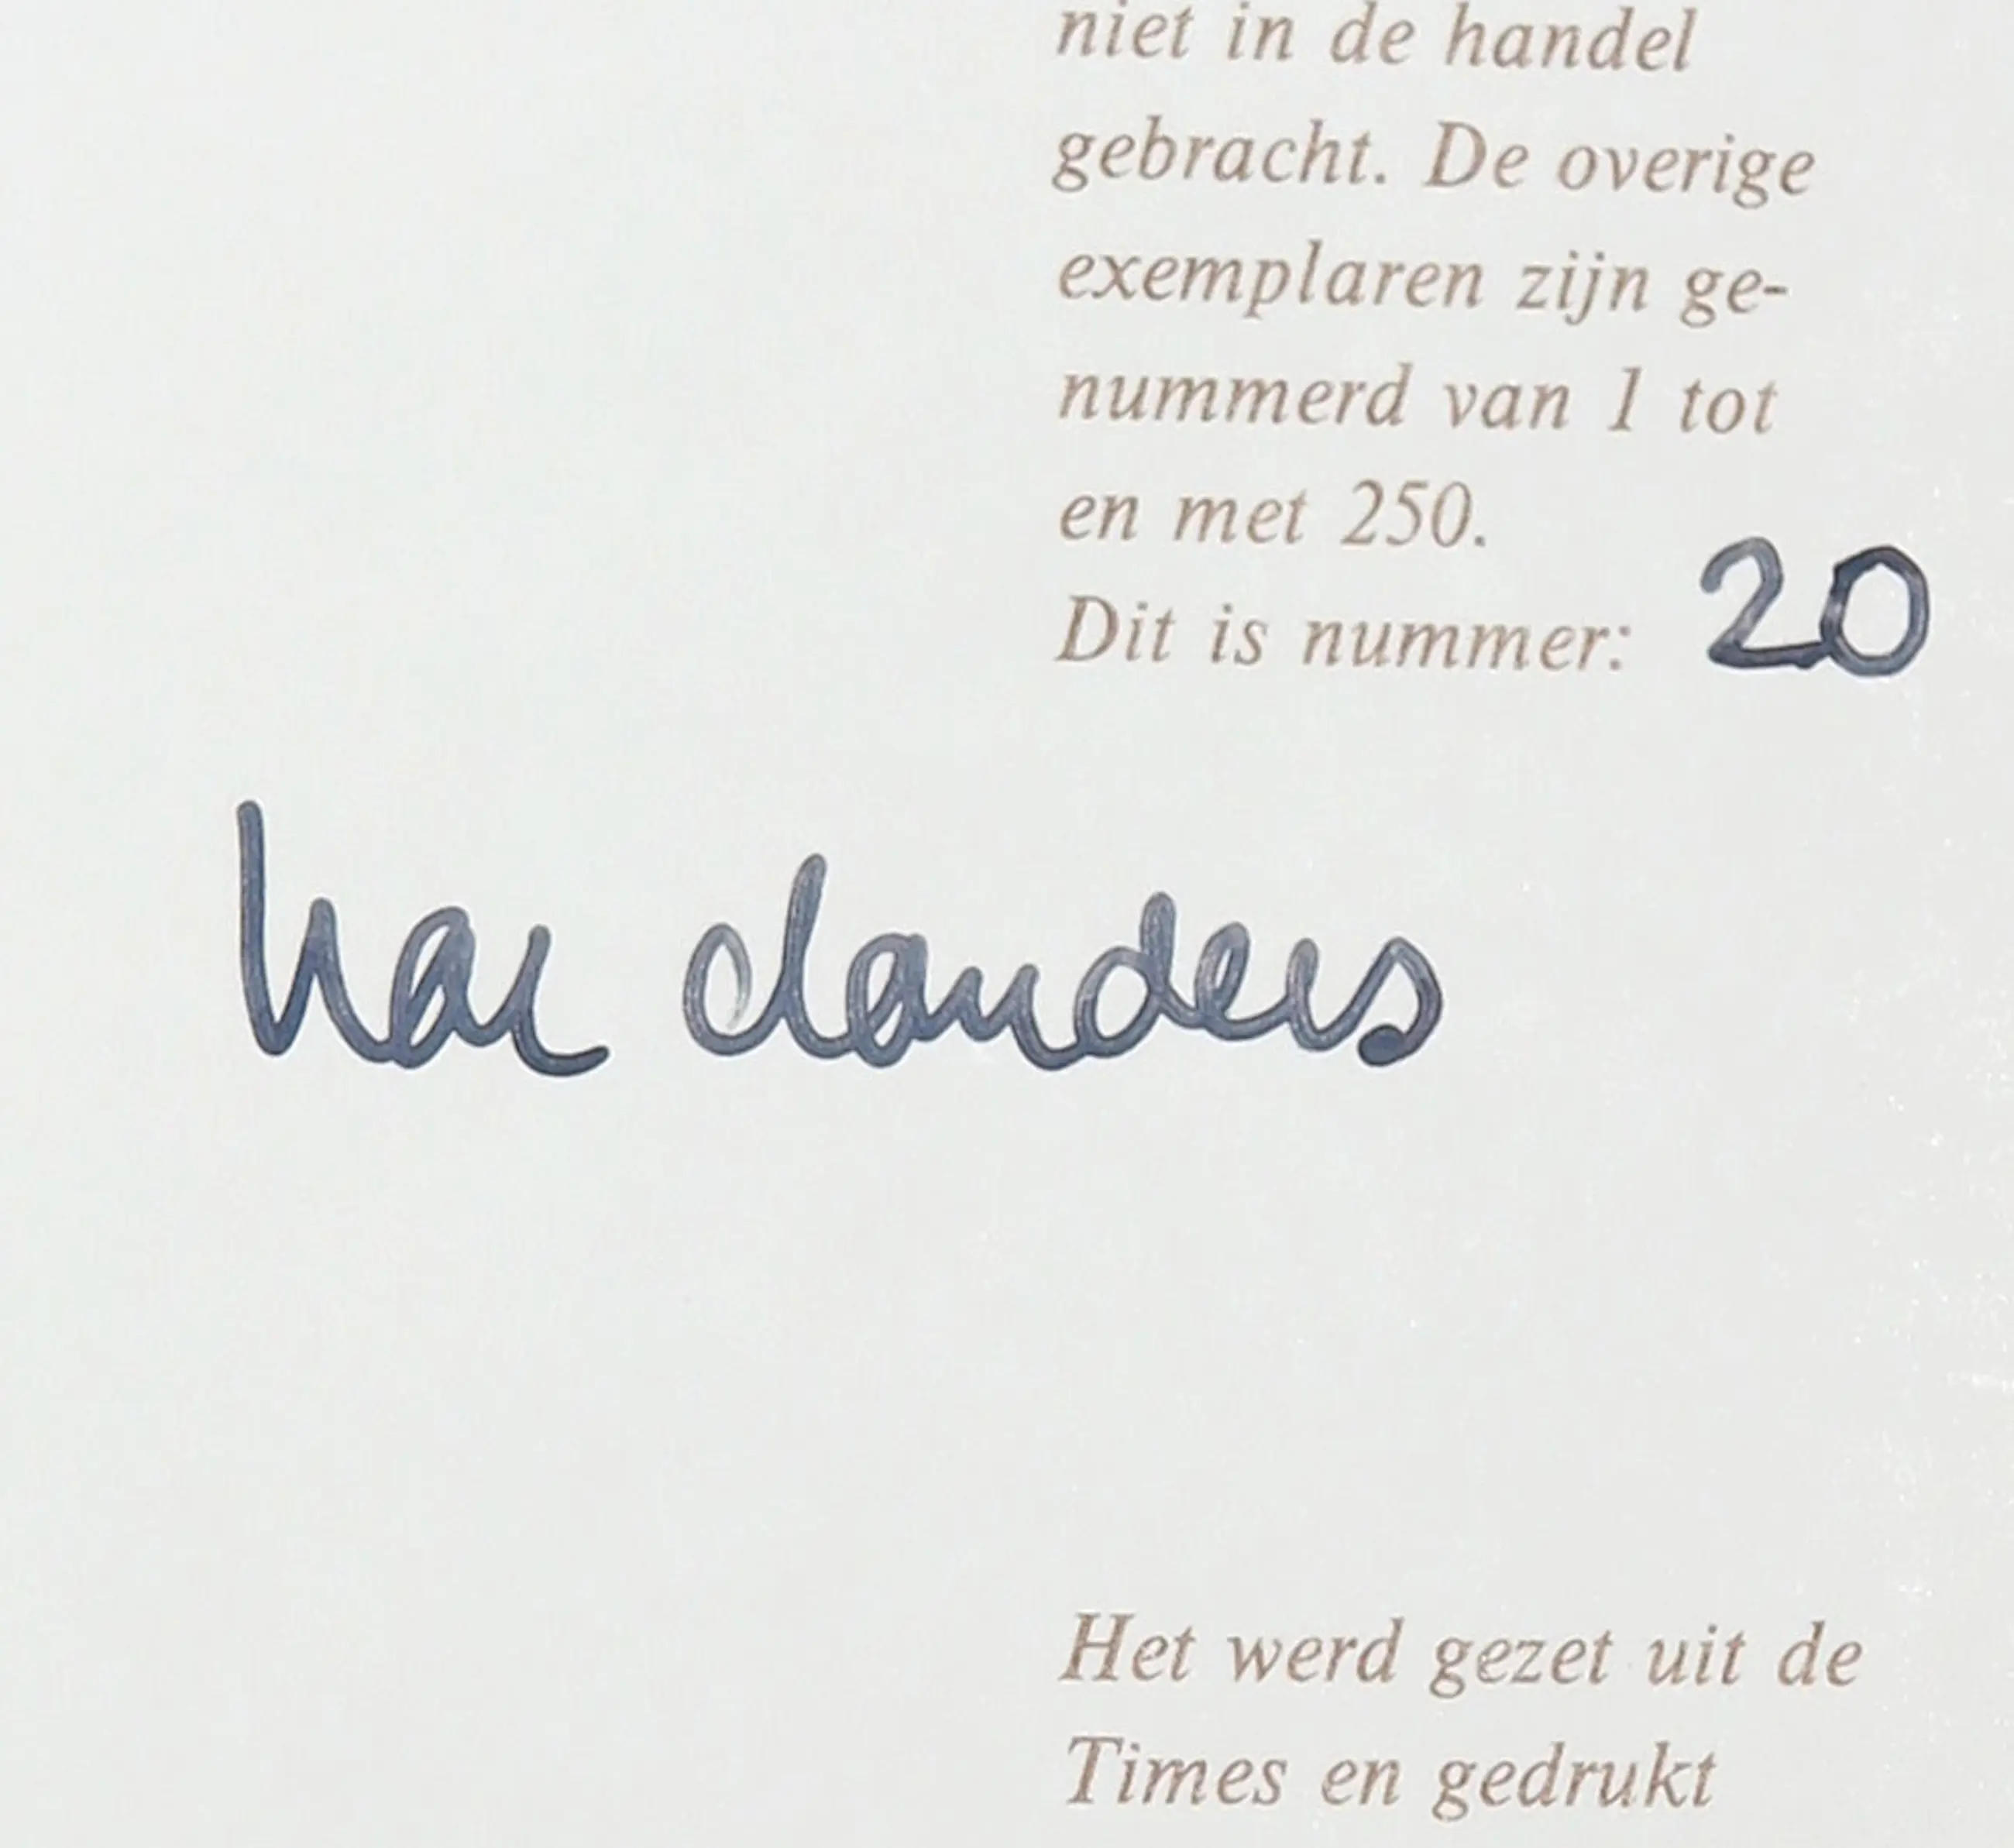 niet in de handel
gebracht. De overige
exemplaren zijn ge-
nummerd van 1 tot
en met 250.
Dit is nummer: 20
Har Sanders
Het werd gezet uit de
Times en gedrukt